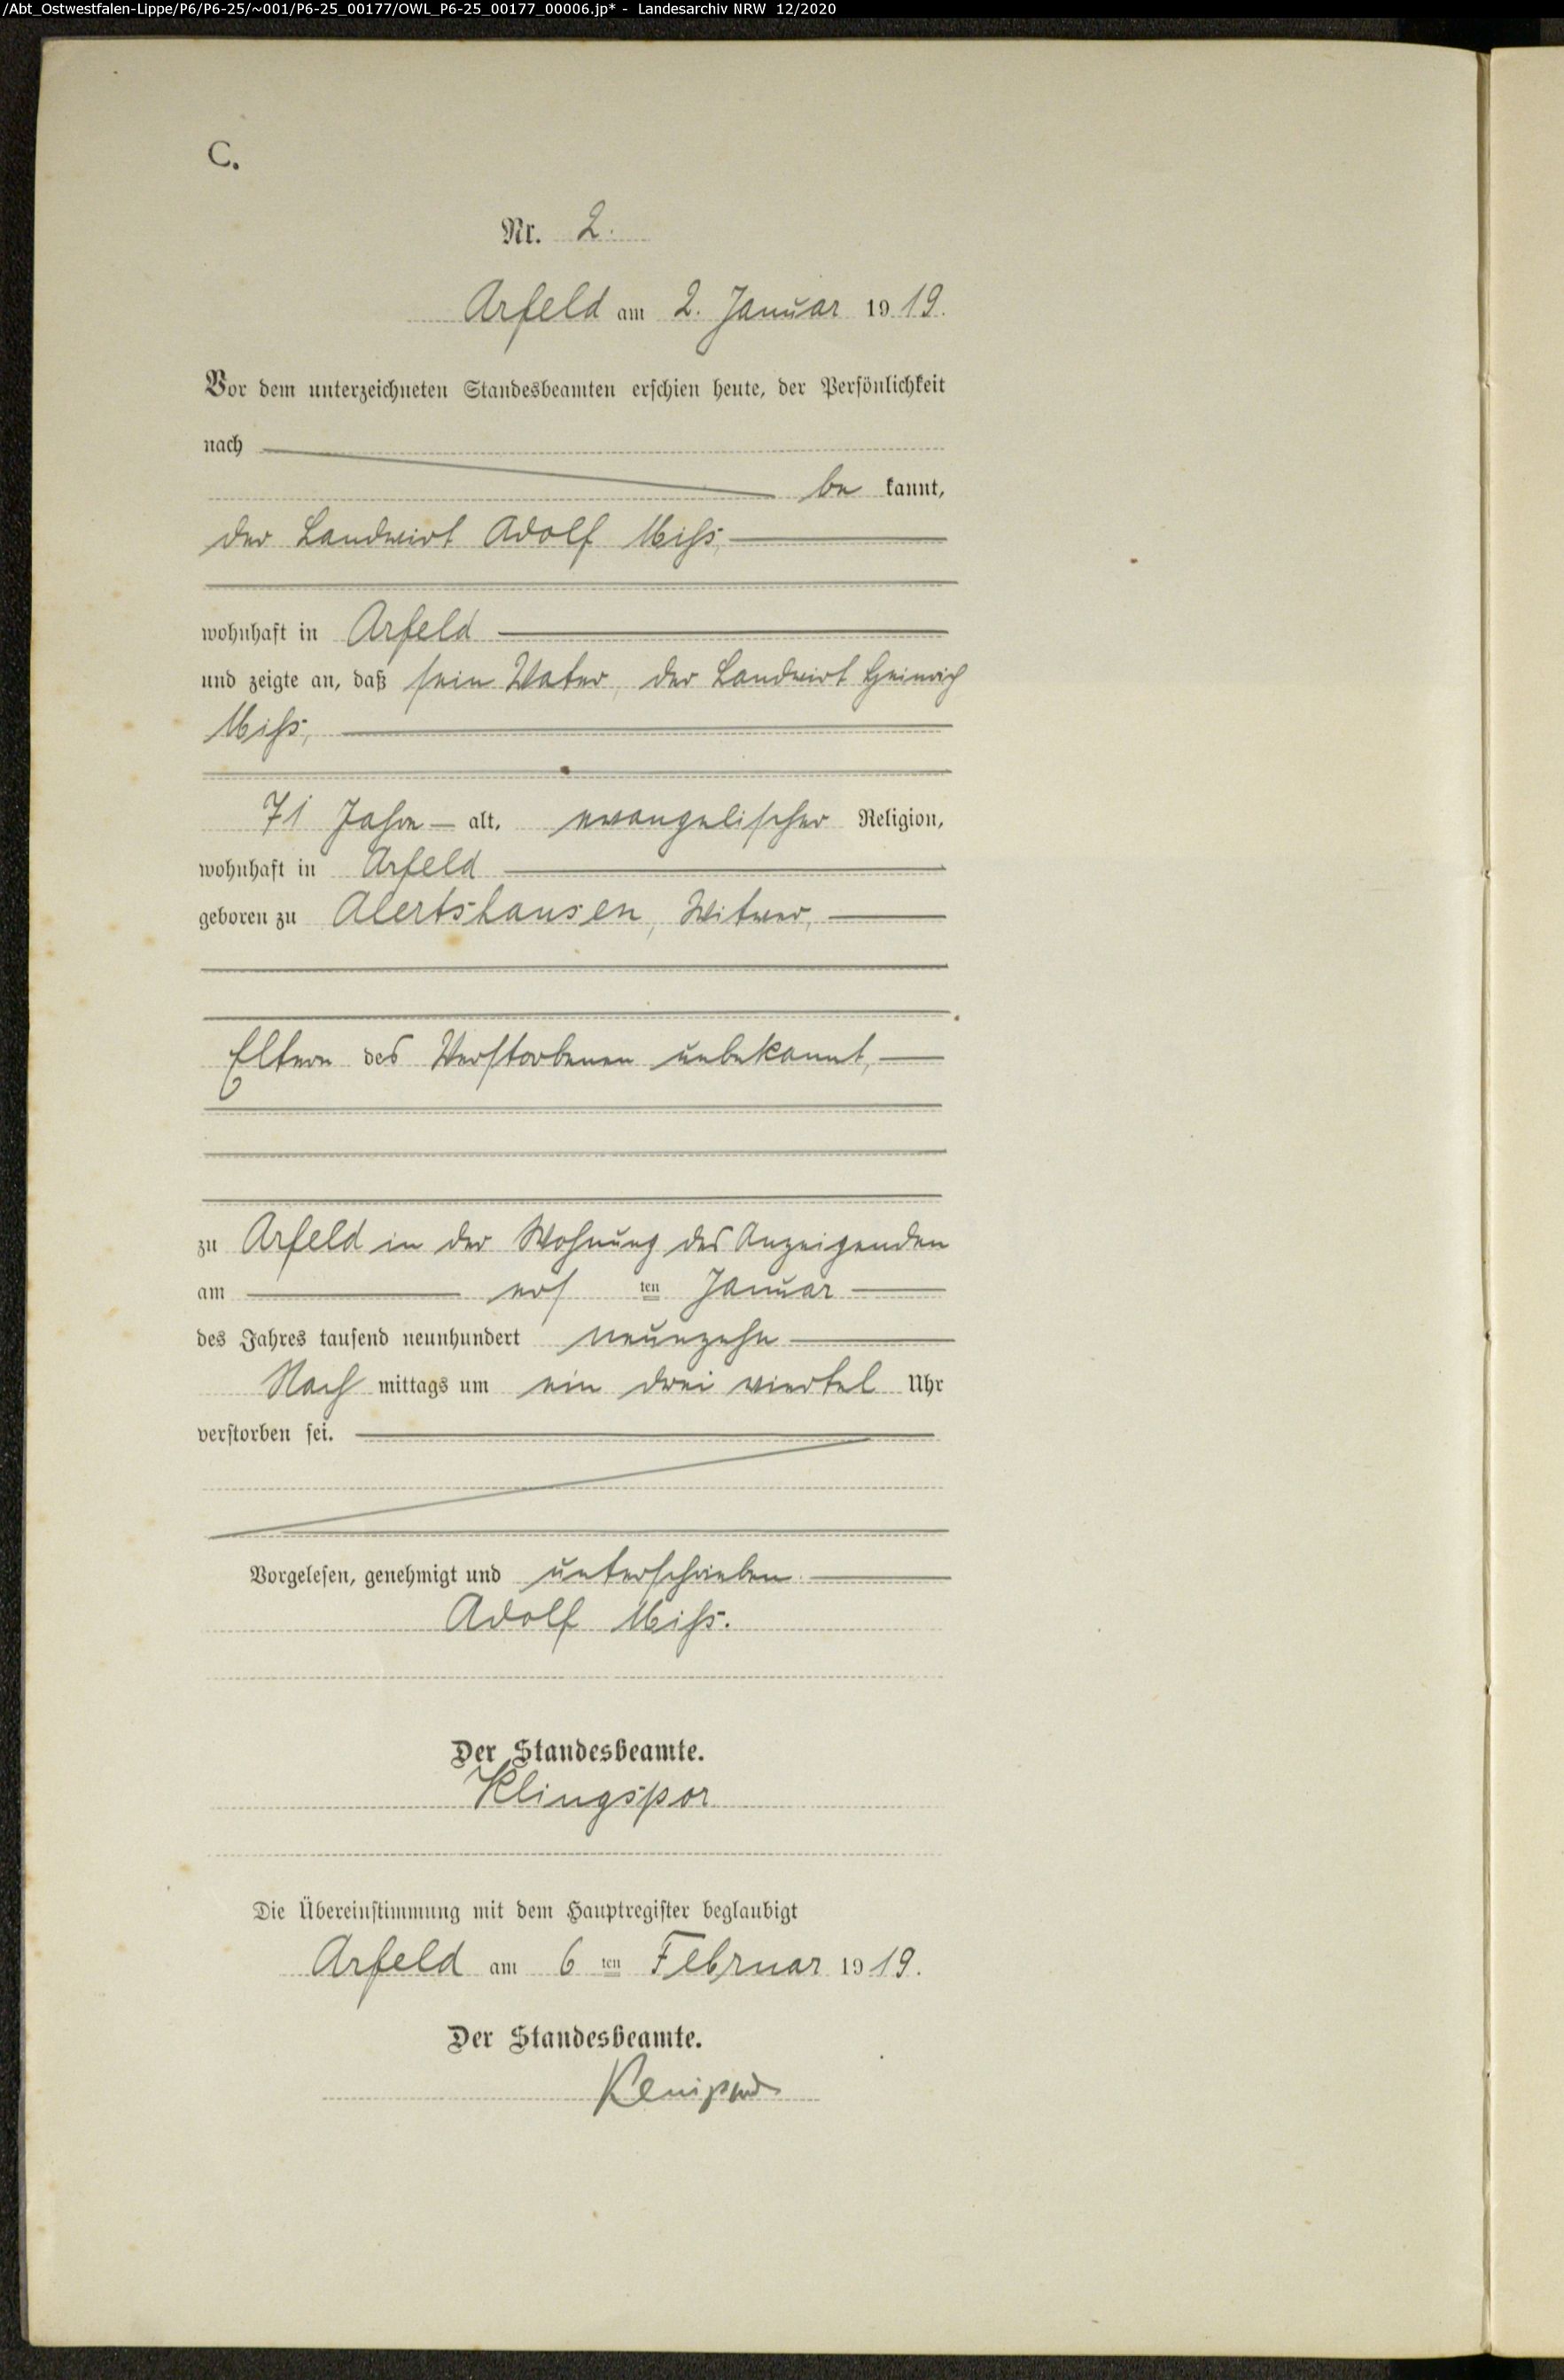 /Abt_Ostwestfalen-Lippe/P6/P6-25/~001/P6-25_00177/OWL_P6-25_00177_00006.jp* - Landesarchiv NRW 12/2020
C.
Nr. 2.
Arfeld am 2. Januar 1919.
Vor dem unterzeichneten Standesbeamten erschien heute, der Persönlichkeit
nach
be kannt,
der Landwirt Adolf
wohnhaft in Arfeld
und zeigte an, daß sein Vater, der Landwirt Heinrich
71 Jahre alt, evangelischer Religion,
wohnhaft in Arfeld
geboren zu Alertshausen, Witwer,
Eltern des Verstorbenen unbekannt,
zu Arfeld in der Wohnung des Anzeigenden
am ers ten Januar
des Jahres tausend neunhundert neunzehn
Nach mittags um ein drei viertel Uhr
verstorben sei.
Vorgelesen, genehmigt und unterschrieben.
Adolf
Der Standesbeamte.
Klingspor
Die Übereinstimmung mit dem Hauptregister beglaubigt
Arfeld am 6 ten Februar 1919.
Der Standesbeamte.